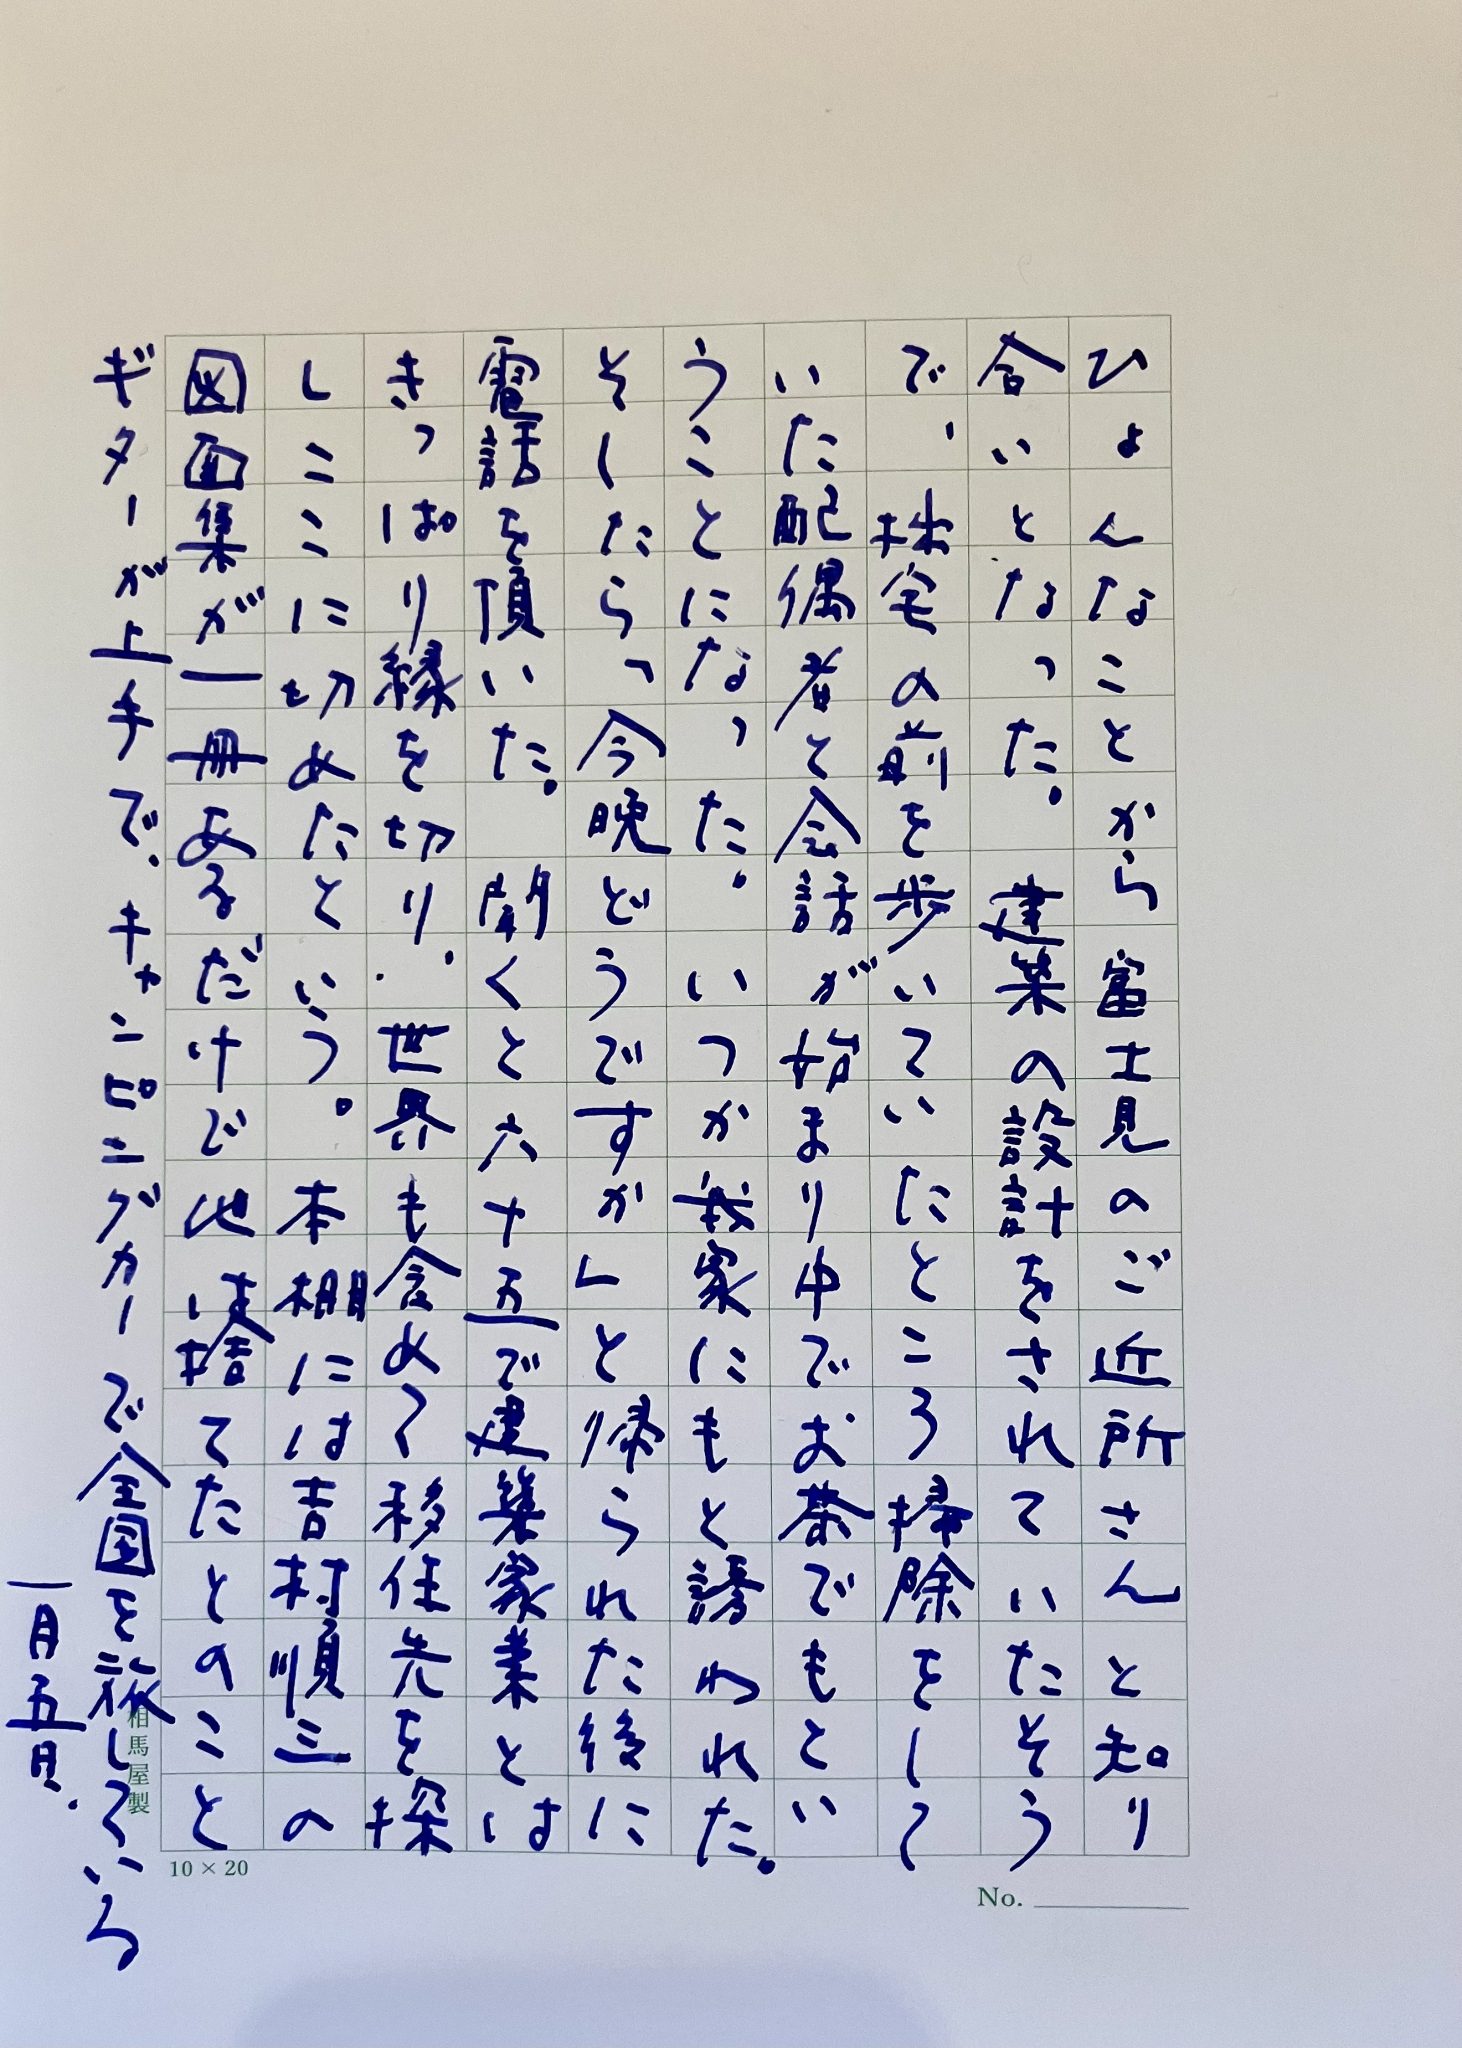 ひょんなことから富士見のご近所さんと知り
合いとなった。建築の設計をされていたそう
で、拙宅の前を歩いていたところ掃除をして
いた配偶者と会話が始まり中でお茶でもとい
うことになった。いつか我家にもと誘われた。
そしたら、今晩どうですか」と帰られた後に
電話を頂いた。聞くと六十五で建築家業とは
きっぱり縁を切り、世界も含めて移住先を探
しここに切めたという。本棚には吉村順三の
図面集が一冊あるだけで他は捨てたとのこと
ギターが上手で、キャンピングカーで全国を旅している
一月五日.
相馬屋製
10×20
No.